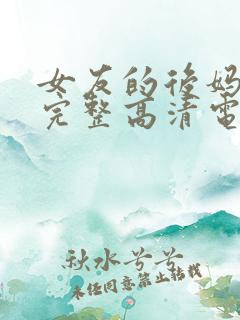 女友的后妈
完整高清电
秋水兮兮
未经同意禁止转载